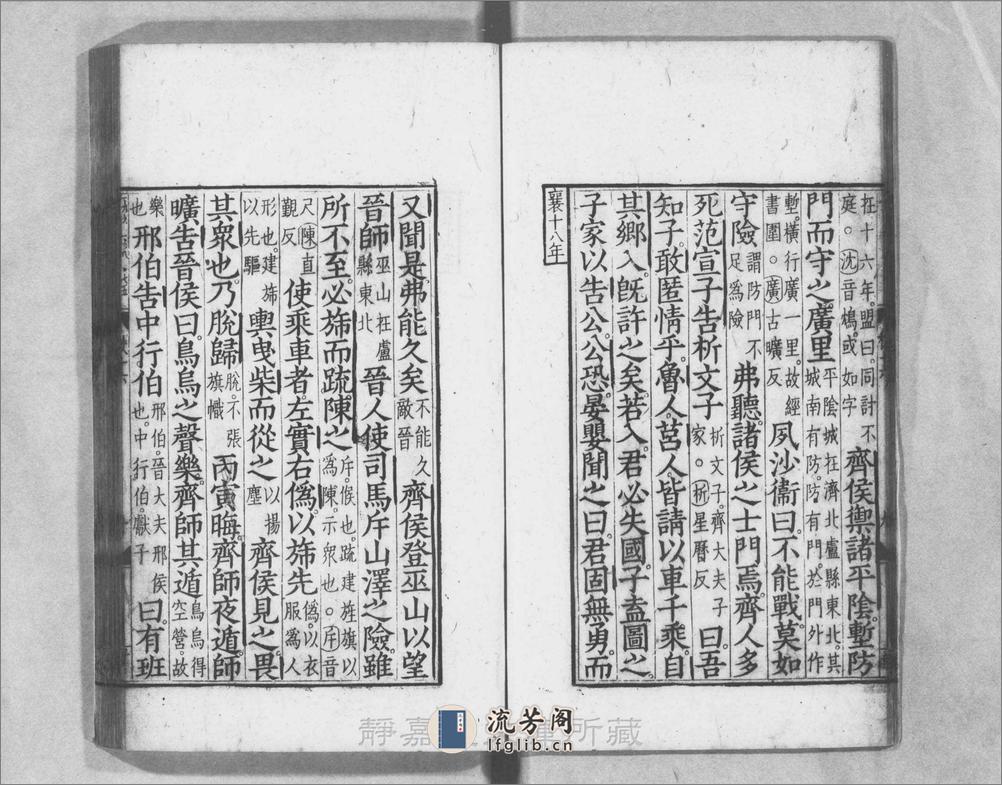 在十六年盟曰同討不庭。沈音鴆或如字齊侯禦諸平隂塹防
門而守之廣里平陰城在濟北盧縣東北其城南有防防有門於門外作
塹橫行廣一里故經書圍。廣古曠反夙沙衞曰不能戰莫如
守險謂防門不足爲險弗聽諸侯之士門焉齊人多
死范宣子告析文子析文子齊大夫子家。析星曆反曰吾
知子敢匿情乎魯人莒人皆請以車千乘自
其鄉入旣許之矣若入君必失國子盍圖之
子家以告公公恐晏嬰聞之曰君固無勇而
襄十八年
又聞是弗能久矣不能久敵晉齊侯登巫山以望
晉師巫山在盧縣東北晉人使司馬斥山澤之險雖
所不至必旆而疏陳之斥候也疏建旌旗以爲陳示衆也。斥音
尺陳直覲反使乘車者左實右僞以旆先僞以衣服爲人
形也建旆以先驅輿曳柴而從之以揚塵齊侯見之畏
其衆也乃脫歸脫不張旗幟丙寅晦齊師夜遁師
曠告晉侯曰鳥烏之聲樂齊師其遁鳥烏得空營故
樂也邢伯告中行伯邢伯晉大夫邢侯也中行伯獻子曰有班
流芳阁
lfglib.cn